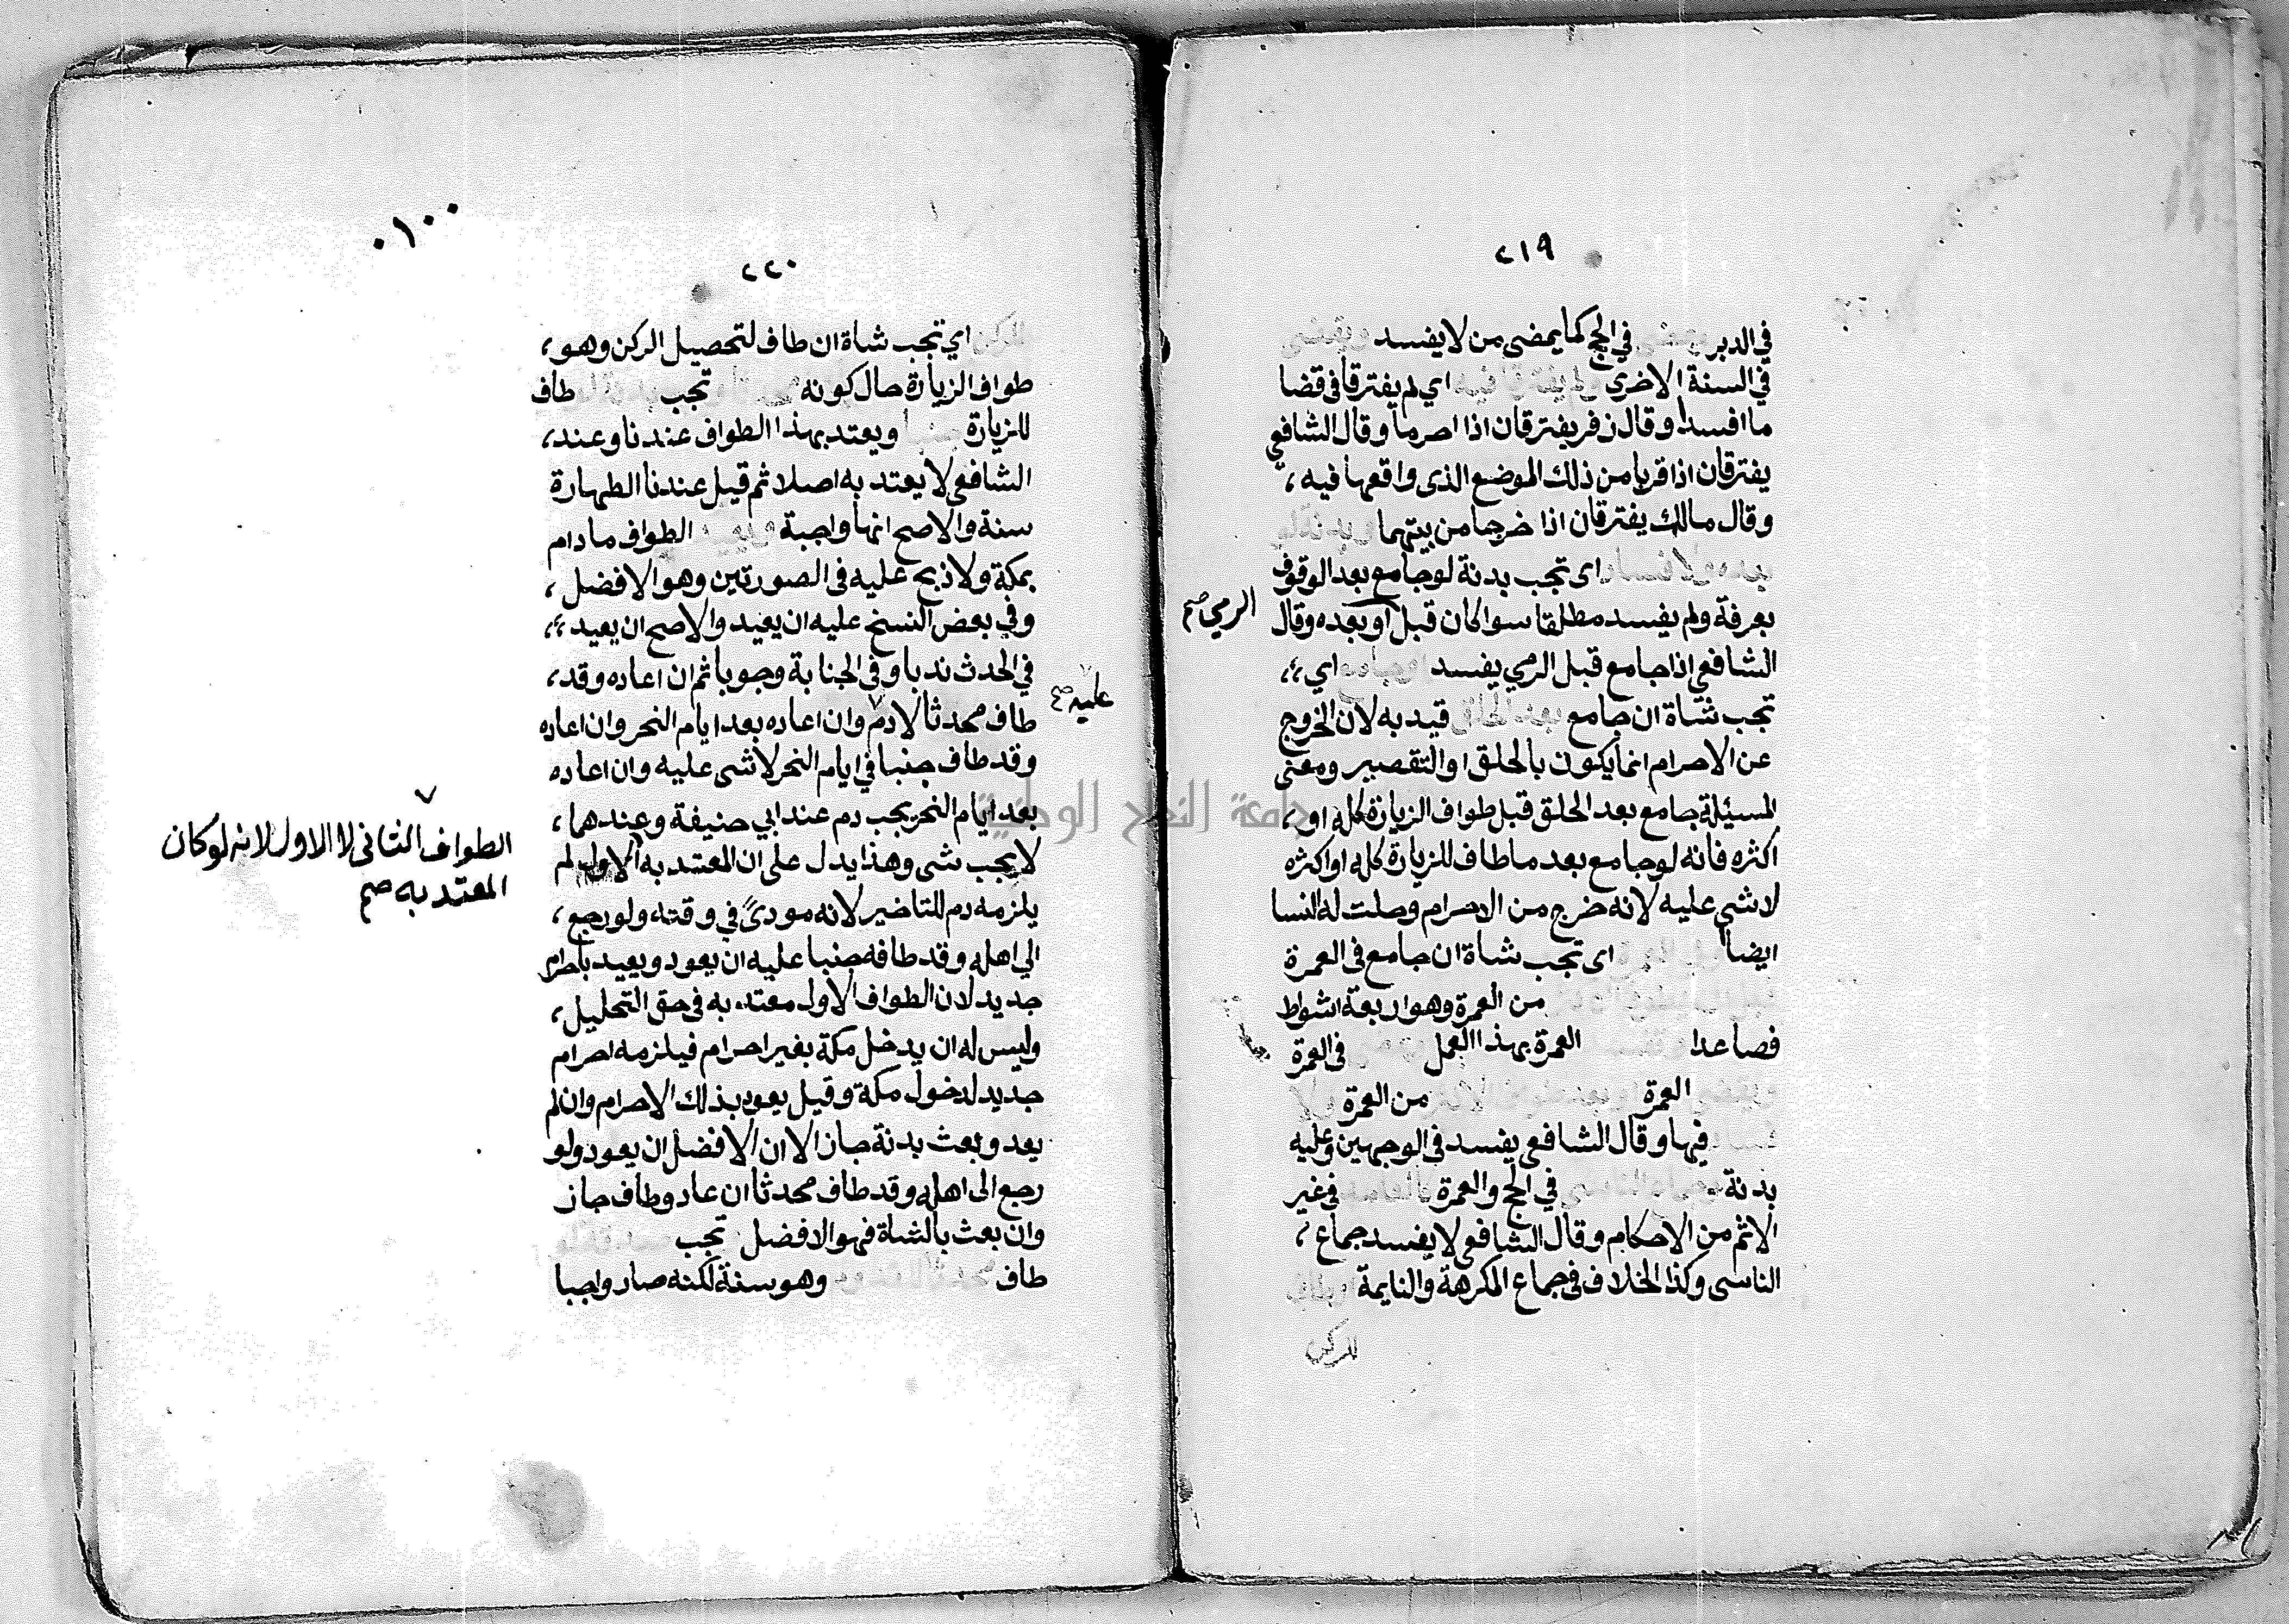 ٢١٩
في الدبر في الحج كما يمضى من لا يفسد
في السنة الاخرى اي لم يفترقا في قضا
ما افسدا وقال زفر يفترقان اذا احرما وقال الشافعي
يفترقان اذا قربا من ذلك الموضع الذى واقعها فيه،
وقال مالك يفترقان اذا خرجا من بيتهما
اى تجب بدنة لو جامع بعد الوقوف
بعرفة ولم يفسد مطلقا سوا كان قبل او بعده وقال
الرمي صح
الشافعي اذا جامع قبل الرمي يفسد اي،
تجب شاة ان جامع بعد الحلق قيد به لان الخروج
عن الاحرام انما يكون بالحلق او التقصير ومعنى
المسئلة جامع بعد الحلق قبل طواف الزيارة كله او،
اكثره فانه لو جامع بعد ما طاف للزيارة كله او اكثره
لا شي عليه لانه خرج من الاحرام وحلت له النسا
ايضا اى تجب شاة ان جامع في العمرة
من العمرة وهو اربعة اشواط
فصاعدا العمرة بهذا العمل في العمرة
العمرة من العمرة
فيها وقال الشافعي يفسد في الوجهين وعليه
بدنة في الحج والعمرة في غير
الاثم من الاحكام وقال الشافعي لا يفسد جماع،
الناسى وكذا الخلاف في جماع المكرهة والنايمة
للركن
٠١٠٠
٢٢٠
للركن اي تجب شاة ان طاف لتحصيل الركن وهو،
طواف الزيارة حال كونه تجب طاف
للزيارة جنبا ويعتد بهذا الطواف عندنا وعند،
الشافعي لا يعتد به اصلا ثم قيل عندنا الطهارة
سنة والاصح انها واجبة الطواف ما دام
بمكة ولا ذبح عليه في الصورتين وهو الافضل،
وفي بعض النسخ عليه ان يعيد والاصح ان يعيد،
في الحدث ندبا وفي الجنابة وجوبا ثم ان اعاده وقد،
عليه صح
طاف محدثا لا دم وان اعاده بعد ايام النحر وان اعاده
وقد طاف جنبا في ايام النحر لا شى عليه وان اعاده
بعد ايام النحر يجب دم عند ابي حنيفة وعندهما،
لا يجب شى وهذا يدل على ان المعتد به الاول لم
الطواف الثاني لا الاول لانه لو كان
المعتد به صح
يلزمه دم للتاخير لانه مودىً في وقته ولو رجع،
الي اهله وقد طافه جنبا عليه ان يعود ويعيد باحرام
جديد لان الطواف الاول معتد به في حق التحليل،
وليس له ان يدخل مكة بغير احرام فيلزمه احرام
جديد لدخول مكة وقيل يعود بذلك الاحرام وان لم
يعد وبعث بدنة جاز الا ان الافضل ان يعود ولو
رجع الى اهله وقد طاف محدثا ان عاد وطاف جاز
وان بعث بالشاة فهو الافضل تجب
طاف وهو سنة لكنه صار واجبا
جامعة النجاح الوطنية